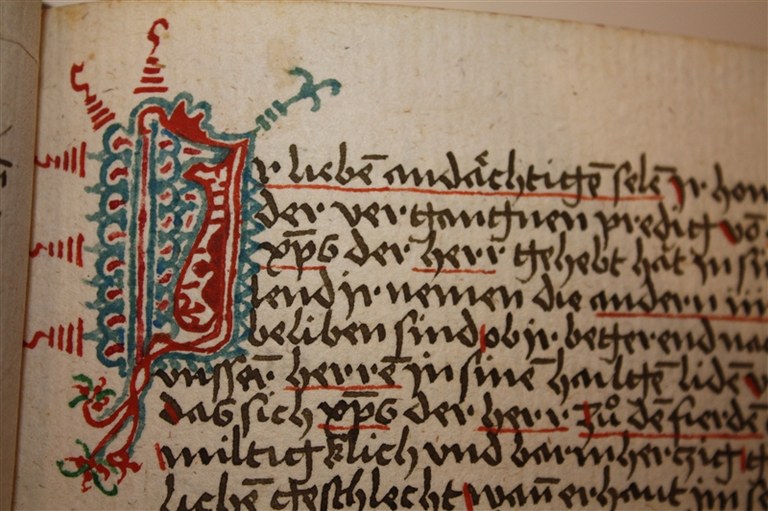 Ir liebē andächtigē selē jr hon
der vergangnen predig vō
xp̄s der herr gehebt hāt in si
lend jr nemen die andern iii
beliben sind ob jr begerend na
vnsserē herrē in sinē hailgē lidē
das sich xp̄s der herr zů dē fierdē
miltigklich vnd barmhertzig
lichē geschlecht wan̄ er haut im s